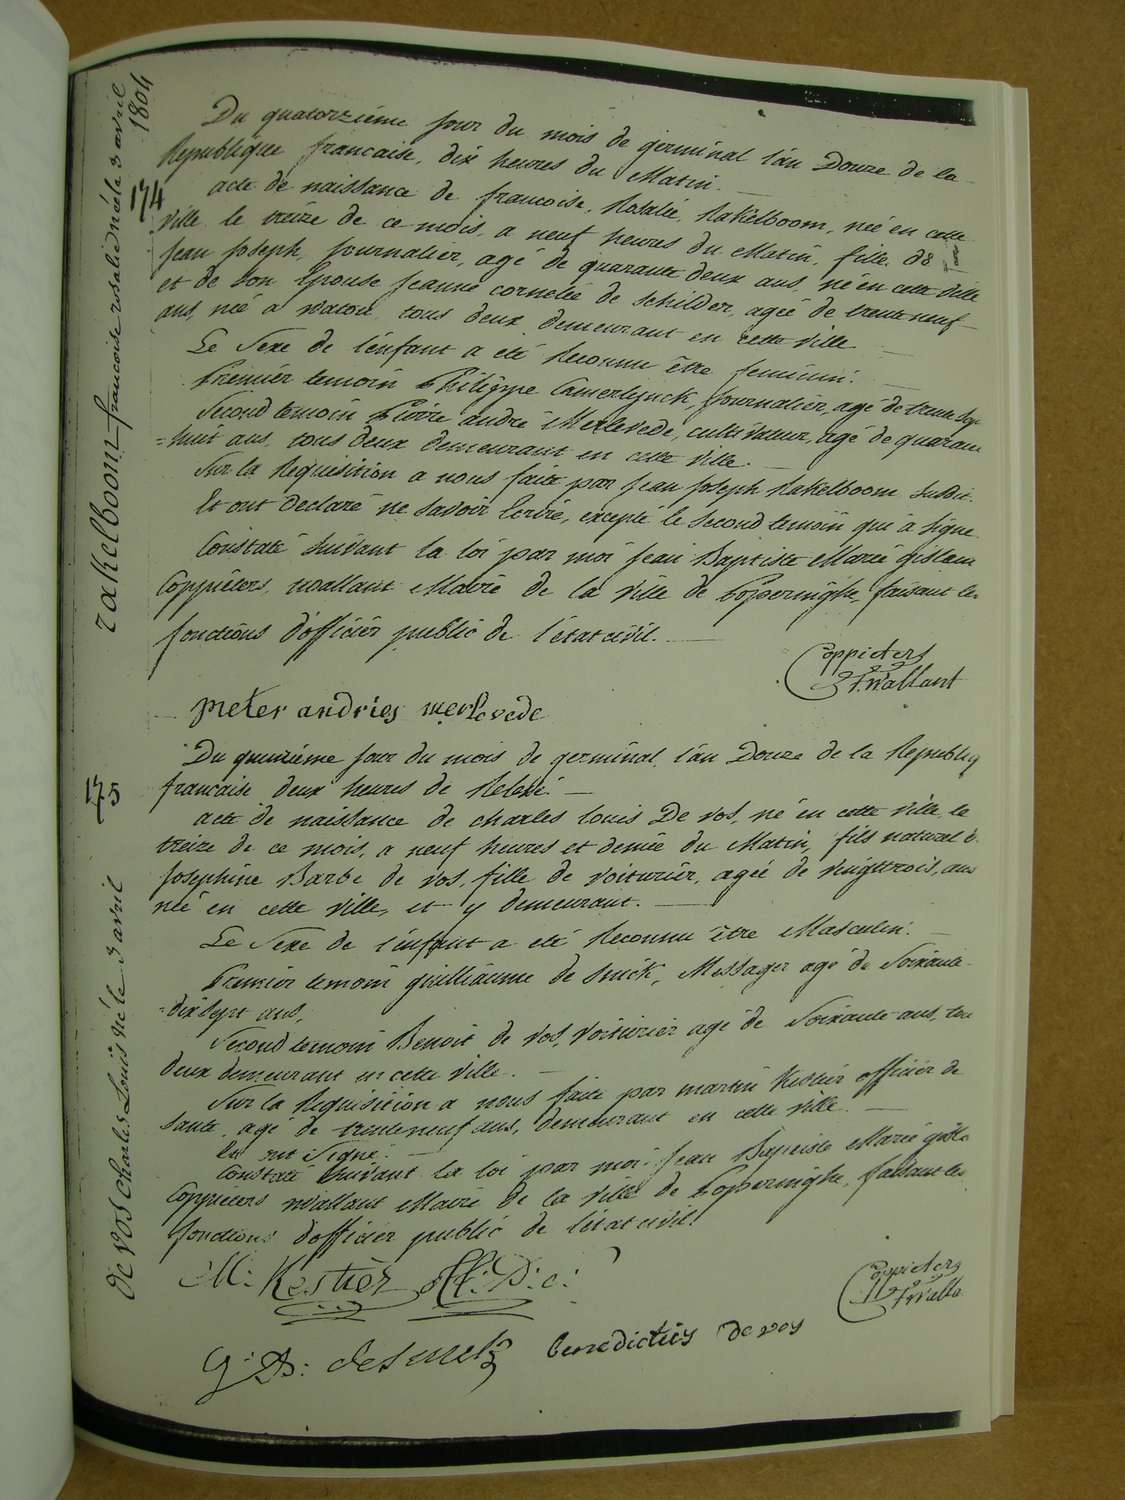 1804
174
rakelboom francoise rosalie née le 3 avril
Du quatorzième jour du mois de germinal l'an Douze de la
Republique francaise, dix heures du Matin.
acte de naissance de francoise, Rosalié, Rakelboom, née en cette
ville le treize de ce mois, a neuf heures du Matin, fille de
jean joseph, journalier, agé de quarante deux ans, né en cette ville
et de son Epouse jeanne cornelie de schilder, ageé de trente neuf
ans, neé a watou, tous deux demeurant en cette ville.
Le Sexe de l'enfant a eté Reconnu être feminin.
Premiér temoin Philippe Camerlynck, journalier, agé de trente sept
Second temoin Pierre andré Merlevede, cultivateur, agé de quaran
=huit ans, tous deux demeurant en cette ville.
Sur la Requisition a nous faite par jean joseph Rakelboom susdit.
Et ont declaré ne savoir Ecrire, excepté le second temoin qui à signé
Constaté suivant la loi par moi jean Baptiste Marie gislain
Coppieters, wallant Maire de la ville de Poperinghe, faisant les
fonctions d'officiér public de l'état civil.
Coppieters
T'wallant
pieter andries merlevede
175
de vos Charles Louis né le 3 avril
Du quinziéme jour du mois de germinal l'an Douze de la Republiq
francaise deux heures de Relevé.
acte de naissance de charles louis De vos, né en cette ville, le
treize de ce mois, a neuf heures et demie du Matin, fils naturel d
josephine Barbe de vos, fille de voiturier, ageé de vingttrois, ans
neé en cette ville, et y demeurant.
Le Sexe de l'enfant a eté Reconnu être Masculin.
Premier temoin guilliaume de smick, Messager agé de Soixante
=dix sept ans,
Second temoin Benoit de vos, voiturier agé de Soixante ans, tou
deux demeurant en cette ville.
Sur la Requisition a nous faite par martin Kestier officier de
santé, agé de trente neuf ans, demeurant en cette ville.
Et ont Signé.
Constaté suivant la loi par moi jean Baptiste Marie gisla
Coppieters wallant Maire de la ville de Poperinghe, faisant les
fonctions d'officiér public de l'état civil.
M: Kestiér off: D: e:
Coppieters
T'walla
G: B: desmet
benedictus de vos